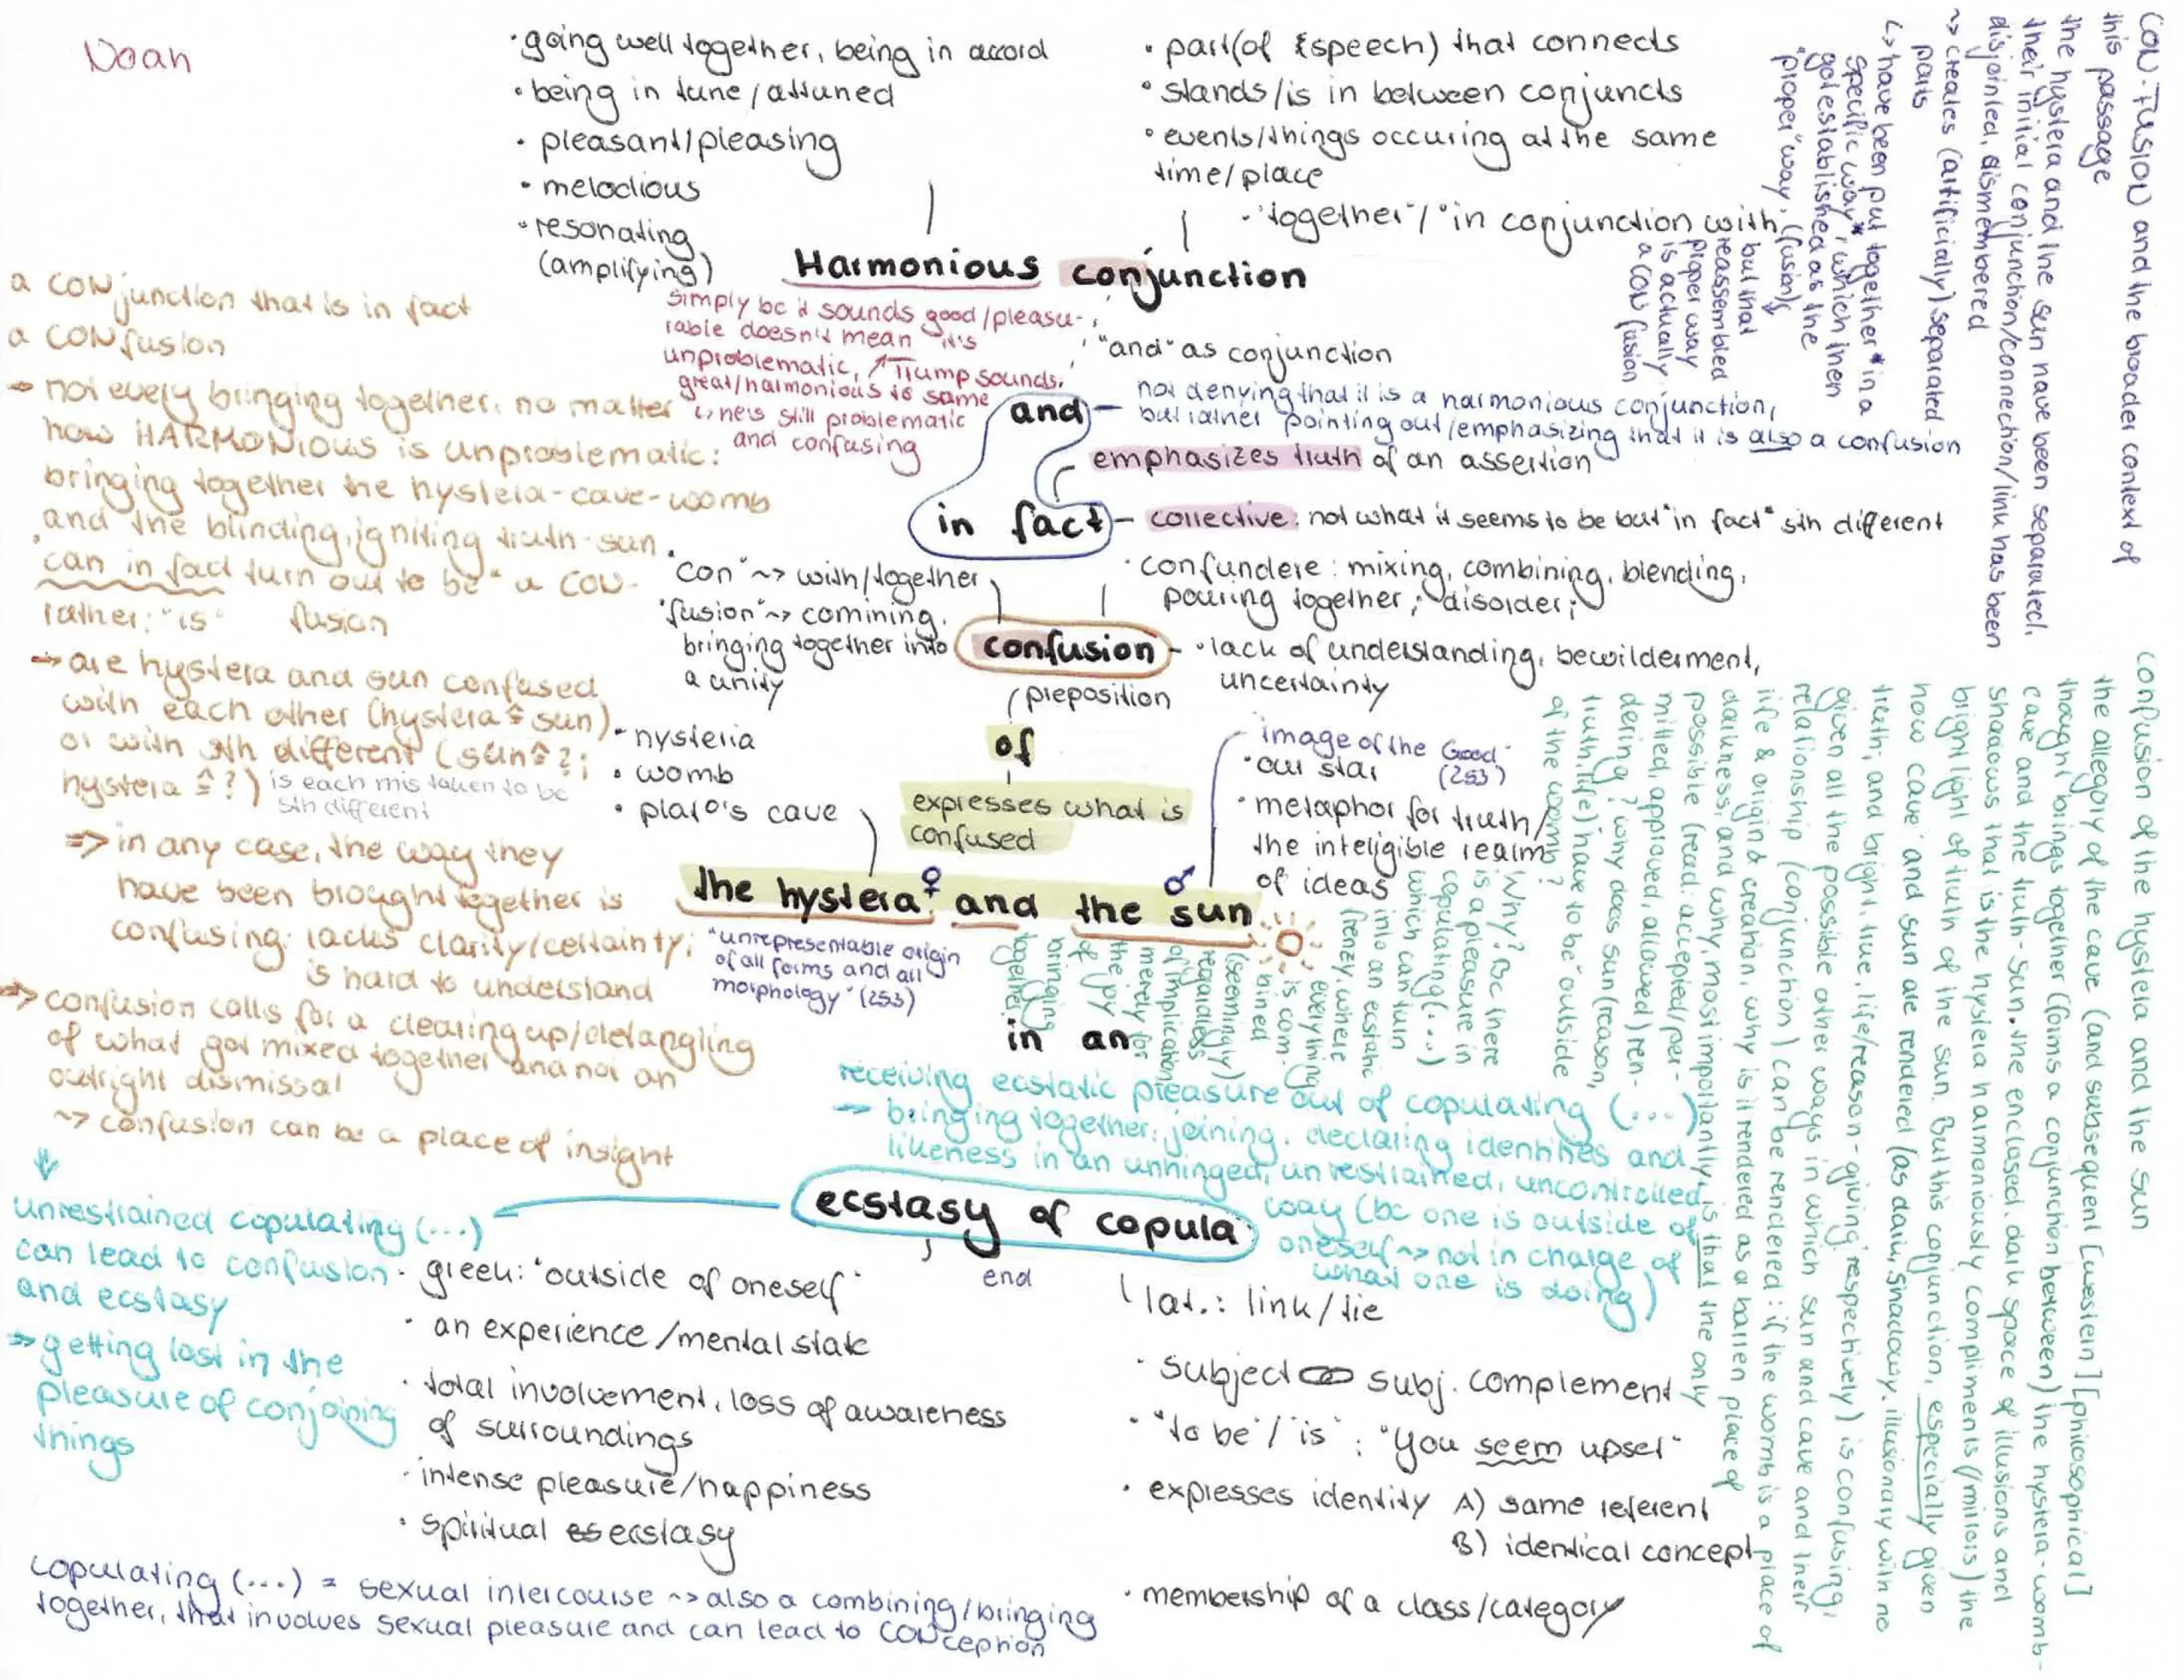 Noah
·going well together, being in accord
·being in tune/attuned
· pleasant/pleasing
· melodious
·resonating
(amplifying)
· part(of speech) that connects
· stands/is in between conjuncts
· events/things occuring at the same
time/place
- "together"/"in conjunction with
Harmonious conjunction
simply bc it sounds good/pleasu-
rable doesn't mean it's
unproblematic, ↗Trump sounds
great/harmonious to some
↳ he's still problematic
and confusing
"and" as conjunction
and
not denying that it is a harmonious conjunction,
but rather pointing out/emphasizing that it is also a confusion
emphasizes truth of an assertion
in fact
corrective: not what it seems to be but "in fact" sth different
a CONjunction that is in fact
a CONfusion
→ not every bringing together, no matter
how HARMONIOUS is unproblematic:
bringing together the hystera-cave-womb
and the blinding, igniting truth-sun
"can in fact turn out to be" a CON-
rather: "is" fusion
→ are hystera and sun confused
with each other (hystera ≙ sun)
or with sth different (sun ≙ ?;
hystera ≙ ?) is each mistaken to be
sth different
⇒ in any case, the way they
have been brought together is
confusing: lacks clarity/certainty;
is hard to understand
⇒ confusion calls for a clearing up/detangling
of what got mixed together and not an
outright dismissal
~> confusion can be a place of insight
"con" ~> with/together
"fusion" ~> comining,
bringing together into
a unity
· confundere: mixing, combining, blending,
pouring together; disorder;
confusion
· lack of understanding, bewilderment,
uncertainty
preposition
of
expresses what is
confused
· hysteria
· womb
· plato's cave
image of the Good"
(253)
· our star
· metaphor for truth/
the inteligible realm
of ideas
the hystera ♀ and the sun ♂
"unrepresentable origin
of all forms and all
morphology" (253)
Why? Bc there
is a pleasure in
copulating (...)
which can turn
into an ecstatic
frenzy, where
everything
is com-
bined
(seemingly)
regardless
of implication
merely for
the joy
of
bringing
together
in an
receiving ecstatic pleasure out of copulating (...)
→ bringing together, joining, declaring identities and
likeness in an unhinged, unrestrained, uncontrolled
way (bc one is outside of
oneself ~> not in charge of
what one is doing)
ecstasy of copula
end
unrestrained copulating (...)
can lead to confusion
and ecstasy
⇒ getting lost in the
pleasure of conjoining
things
· greek: "outside of oneself"
· an experience/mental state
· total involvement, loss of awareness
of surroundings
· intense pleasure/happiness
· spiritual ecstasy
lat.: link/tie
· subject subj. complement
· "to be"/"is": "You seem upset"
· expresses identity A) same referent
B) identical concept
· membership of a class/category
copulating (...) = sexual intercourse ~> also a combining/bringing
together, that involves sexual pleasure and can lead to CONception
CON-FUSION and the broader context of
this passage
the hystera and the sun have been separated,
their initial conjunction/connection/link has been
disjointed, dismembered
~> creates (artificially) separated
parts
↳ have been put together* in a
specific way*, which then
got established as the
"proper" way. (fusion)
but that
reassembled
proper way
is actually
a CON fusion
confusion of the hystera and the sun
the allegory of the cave (and subsequent [western] [philosophical]
thought brings together (forms a conjunction between) the hystera-womb-
cave and the truth-sun. the enclosed, dark space of illusions and
shadows that is the hystera harmoniously compliments (/mirrors) the
bright light of truth of the sun. But this conjunction, especially given
how cave and sun are rendered (as dark, shadowy, illusionary with no
truth; and bright, true, life/reason-giving respectively) is confusing,
given all the possible other ways in which sun and cave and their
relationship (conjunction) can be rendered: if the womb is a place of
life & origin & creation, why is it rendered as a barren place of
darkness, and why, most importantly, is that the only
possible (read: accepted/per-
mitted, approved, allowed) ren-
dering? why does sun (reason,
truth, life) have to be outside
of the womb?